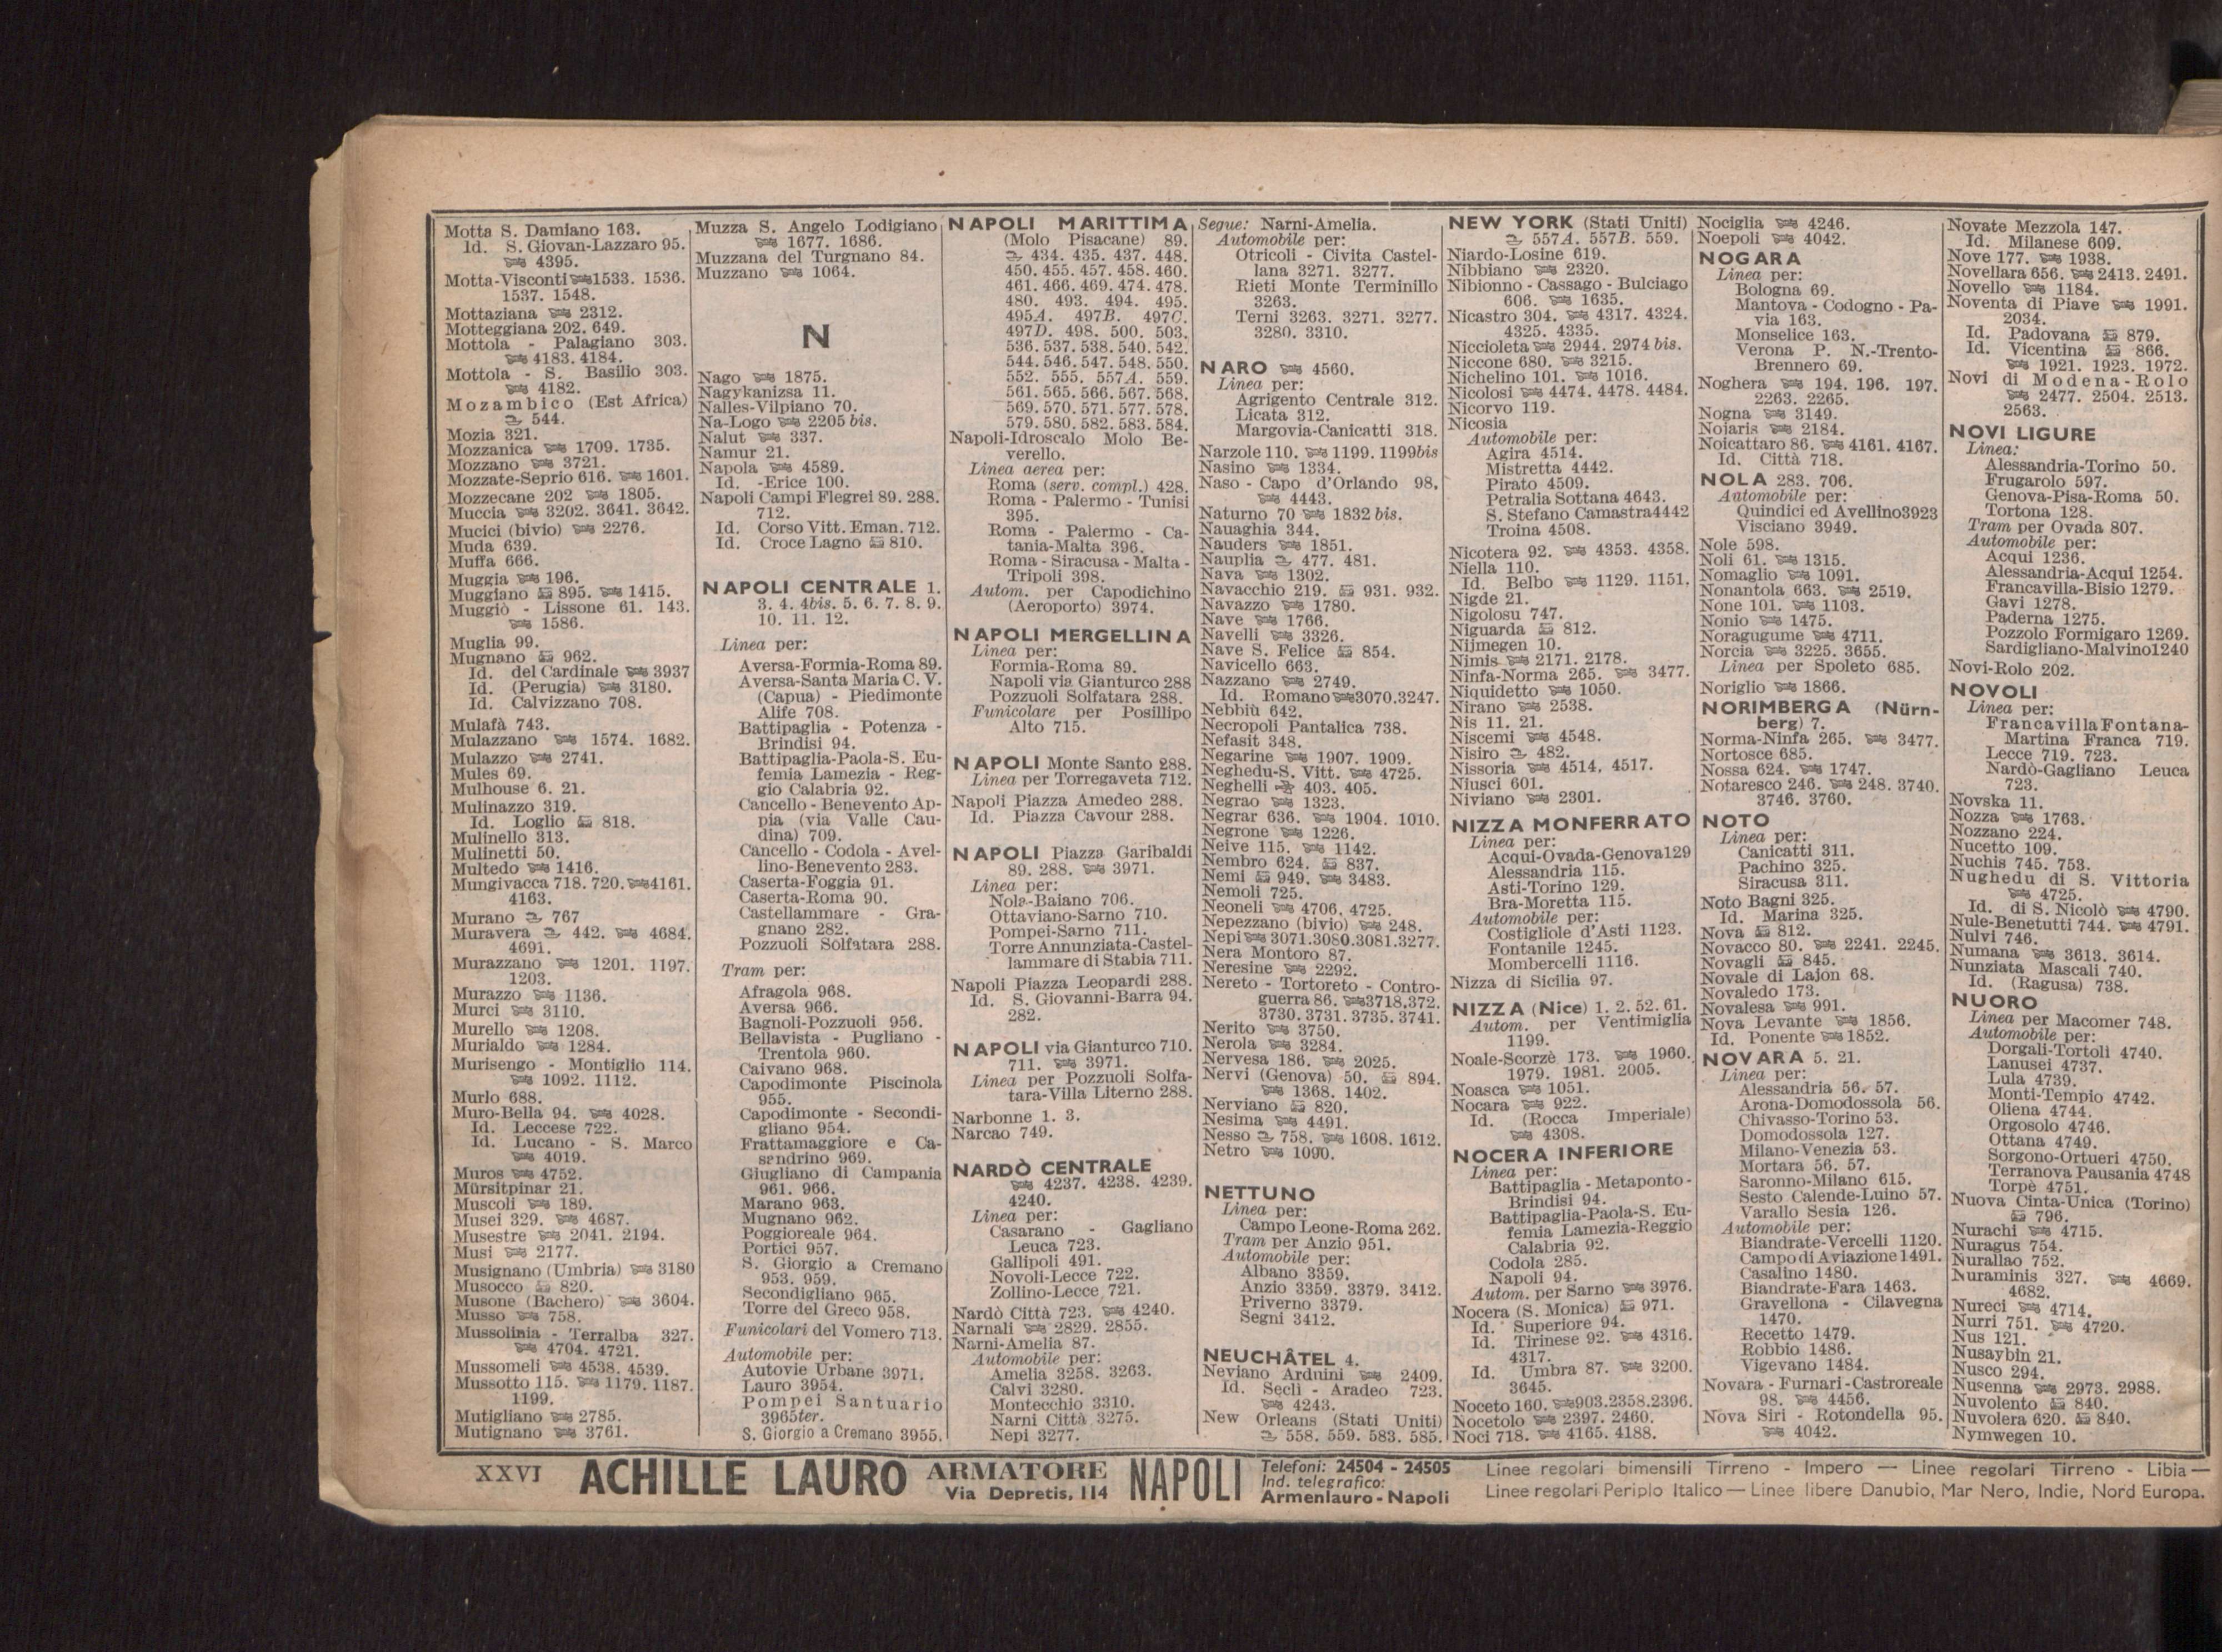 Motta S. Damiano 163.
Id. S. Giovan-Lazzaro 95.
4395.
Motta-Visconti 1533. 1536.
1537. 1548.
Mottaziana 2312.
Motteggiana 202. 649.
Mottola - Palagiano 303.
4183. 4184.
Mottola - S. Basilio 303.
4182.
Mozambico (Est Africa)
544.
Mozia 321.
Mozzanica 1709. 1735.
Mozzano 3721.
Mozzate-Seprio 616. 1601.
Mozzecane 202 1805.
Muccia 3202. 3641. 3642.
Mucici (bivio) 2276.
Muda 639.
Muffa 666.
Muggia 196.
Muggiano 895. 1415.
Muggiò - Lissone 61. 143.
1586.
Muglia 99.
Mugnano 962.
Id. del Cardinale 3937
Id. (Perugia) 3180.
Id. Calvizzano 708.
Mulafà 743.
Mulazzano 1574. 1682.
Mulazzo 2741.
Mules 69.
Mulhouse 6. 21.
Mulinazzo 319.
Id. Loglio 818.
Mulinello 313.
Mulinetti 50.
Multedo 1416.
Mungivacca 718. 720. 4161.
4163.
Murano 767
Muravera 442. 4684.
4691.
Murazzano 1201. 1197.
1203.
Murazzo 1136.
Murci 3110.
Murello 1208.
Murialdo 1284.
Murisengo - Montiglio 114.
1092. 1112.
Murlo 688.
Muro-Bella 94. 4028.
Id. Leccese 722.
Id. Lucano - S. Marco
4019.
Muros 4752.
Mürsitpinar 21.
Muscoli 189.
Musei 329. 4687.
Musestre 2041. 2194.
Musi 2177.
Musignano (Umbria) 3180
Musocco 820.
Musone (Bachero) 3604.
Musso 758.
Mussolinia - Terralba 327.
4704. 4721.
Mussomeli 4538. 4539.
Mussotto 115. 1179. 1187.
1199.
Mutigliano 2785.
Mutignano 3761.
Muzza S. Angelo Lodigiano
1677. 1686.
Muzzana del Turgnano 84.
Muzzano 1064.
N
Nago 1875.
Nagykanizsa 11.
Nalles-Vilpiano 70.
Na-Logo 2205 bis.
Nalut 337.
Namur 21.
Napola 4589.
Id. -Erice 100.
Napoli Campi Flegrei 89. 288.
712.
Id. Corso Vitt. Eman. 712.
Id. Croce Lagno 810.
NAPOLI CENTRALE 1.
3. 4. 4bis. 5. 6. 7. 8. 9.
10. 11. 12.
Linea per:
Aversa-Formia-Roma 89.
Aversa-Santa Maria C. V.
(Capua) - Piedimonte
Alife 708.
Battipaglia - Potenza -
Brindisi 94.
Battipaglia-Paola-S. Eu-
femia Lamezia - Reg-
gio Calabria 92.
Cancello - Benevento Ap-
pia (via Valle Cau-
dina) 709.
Cancello - Codola - Avel-
lino-Benevento 283.
Caserta-Foggia 91.
Caserta-Roma 90.
Castellammare - Gra-
gnano 282.
Pozzuoli Solfatara 288.
Tram per:
Afragola 968.
Aversa 966.
Bagnoli-Pozzuoli 956.
Bellavista - Pugliano -
Trentola 960.
Caivano 968.
Capodimonte Piscinola
955.
Capodimonte - Secondi-
gliano 954.
Frattamaggiore e Ca-
sandrino 969.
Giugliano di Campania
961. 966.
Marano 963.
Mugnano 962.
Poggioreale 964.
Portici 957.
S. Giorgio a Cremano
953. 959.
Secondigliano 965.
Torre del Greco 958.
Funicolari del Vomero 713.
Automobile per:
Autovie Urbane 3971.
Lauro 3954.
Pompei Santuario
3965ter.
S. Giorgio a Cremano 3955.
NAPOLI MARITTIMA
(Molo Pisacane) 89.
434. 435. 437. 448.
450. 455. 457. 458. 460.
461. 466. 469. 474. 478.
480. 493. 494. 495.
495A. 497B. 497C.
497D. 498. 500. 503.
536. 537. 538. 540. 542.
544. 546. 547. 548. 550.
552. 555. 557A. 559.
561. 565. 566. 567. 568.
569. 570. 571. 577. 578.
579. 580. 582. 583. 584.
Napoli-Idroscalo Molo Be-
verello.
Linea aerea per:
Roma (serv. compl.) 428.
Roma - Palermo - Tunisi
395.
Roma - Palermo - Ca-
tania-Malta 396.
Roma - Siracusa - Malta -
Tripoli 398.
Autom. per Capodichino
(Aeroporto) 3974.
NAPOLI MERGELLINA
Linea per:
Formia-Roma 89.
Napoli via Gianturco 288
Pozzuoli Solfatara 288.
Funicolare per Posillipo
Alto 715.
NAPOLI Monte Santo 288.
Linea per Torregaveta 712.
Napoli Piazza Amedeo 288.
Id. Piazza Cavour 288.
NAPOLI Piazza Garibaldi
89. 288. 3971.
Linea per:
Nola-Baiano 706.
Ottaviano-Sarno 710.
Pompei-Sarno 711.
Torre Annunziata-Castel-
lammare di Stabia 711.
Napoli Piazza Leopardi 288.
Id. S. Giovanni-Barra 94.
282.
NAPOLI via Gianturco 710.
711. 3971.
Linea per Pozzuoli Solfa-
tara-Villa Literno 288.
Narbonne 1. 3.
Narcao 749.
NARDÒ CENTRALE
4237. 4238. 4239.
4240.
Linea per:
Casarano - Gagliano
Leuca 723.
Gallipoli 491.
Novoli-Lecce 722.
Zollino-Lecce 721.
Nardò Città 723. 4240.
Narnali 2829. 2855.
Narni-Amelia 87.
Automobile per:
Amelia 3258. 3263.
Calvi 3280.
Montecchio 3310.
Narni Città 3275.
Nepi 3277.
Segue: Narni-Amelia.
Automobile per:
Otricoli - Civita Castel-
lana 3271. 3277.
Rieti Monte Terminillo
3263.
Terni 3263. 3271. 3277.
3280. 3310.
NARO 4560.
Linea per:
Agrigento Centrale 312.
Licata 312.
Margovia-Canicatti 318.
Narzole 110. 1199. 1199bis
Nasino 1334.
Naso - Capo d'Orlando 98.
4443.
Naturno 70 1832 bis.
Nauaghia 344.
Nauders 1851.
Nauplia 477. 481.
Nava 1302.
Navacchio 219. 931. 932.
Navazzo 1780.
Nave 1766.
Navelli 3326.
Nave S. Felice 854.
Navicello 663.
Nazzano 2749.
Id. Romano 3070.3247.
Nebbiù 642.
Necropoli Pantalica 738.
Nefasit 348.
Negarine 1907. 1909.
Neghedu-S. Vitt. 4725.
Neghelli 403. 405.
Negrao 1323.
Negrar 636. 1904. 1010.
Negrone 1226.
Neive 115. 1142.
Nembro 624. 837.
Nemi 949. 3483.
Nemoli 725.
Neoneli 4706. 4725.
Nepezzano (bivio) 248.
Nepi 3071.3080.3081.3277.
Nera Montoro 87.
Neresine 2292.
Nereto - Tortoreto - Contro-
guerra 86. 3718.372.
3730. 3731. 3735. 3741.
Nerito 3750.
Nerola 3284.
Nervesa 186. 2025.
Nervi (Genova) 50. 894.
1368. 1402.
Nerviano 820.
Nesima 4491.
Nesso 758. 1608. 1612.
Netro 1090.
NETTUNO
Linea per:
Campo Leone-Roma 262.
Tram per Anzio 951.
Automobile per:
Albano 3359.
Anzio 3359. 3379. 3412.
Priverno 3379.
Segni 3412.
NEUCHÂTEL 4.
Neviano Arduini 2409.
Id. Seclì - Aradeo 723.
4243.
New Orleans (Stati Uniti)
558. 559. 583. 585.
NEW YORK (Stati Uniti)
557A. 557B. 559.
Niardo-Losine 619.
Nibbiano 2320.
Nibionno - Cassago - Bulciago
606. 1635.
Nicastro 304. 4317. 4324.
4325. 4335.
Niccioleta 2944. 2974 bis.
Niccone 680. 3215.
Nichelino 101. 1016.
Nicolosi 4474. 4478. 4484.
Nicorvo 119.
Nicosia
Automobile per:
Agira 4514.
Mistretta 4442.
Pirato 4509.
Petralia Sottana 4643.
S. Stefano Camastra4442
Troina 4508.
Nicotera 92. 4353. 4358.
Niella 110.
Id. Belbo 1129. 1151.
Nigde 21.
Nigolosu 747.
Niguarda 812.
Nijmegen 10.
Nimis 2171. 2178.
Ninfa-Norma 265. 3477.
Niquidetto 1050.
Nirano 2538.
Nis 11. 21.
Niscemi 4548.
Nisiro 482.
Nissoria 4514. 4517.
Niusci 601.
Niviano 2301.
NIZZA MONFERRATO
Linea per:
Acqui-Ovada-Genova129
Alessandria 115.
Asti-Torino 129.
Bra-Moretta 115.
Automobile per:
Costigliole d'Asti 1123.
Fontanile 1245.
Mombercelli 1116.
Nizza di Sicilia 97.
NIZZA (Nice) 1. 2. 52. 61.
Autom. per Ventimiglia
1199.
Noale-Scorzè 173. 1960.
1979. 1981. 2005.
Noasca 1051.
Nocara 922.
Id. (Rocca Imperiale)
4308.
NOCERA INFERIORE
Linea per:
Battipaglia - Metaponto -
Brindisi 94.
Battipaglia-Paola-S. Eu-
femia Lamezia-Reggio
Calabria 92.
Codola 285.
Napoli 94.
Autom. per Sarno 3976.
Nocera (S. Monica) 971.
Id. Superiore 94.
Id. Tirinese 92. 4316.
4317.
Id. Umbra 87. 3200.
3645.
Noceto 160. 903.2358.2396.
Nocetolo 2397. 2460.
Noci 718. 4165. 4188.
Nociglia 4246.
Noepoli 4042.
NOGARA
Linea per:
Bologna 69.
Mantova - Codogno - Pa-
via 163.
Monselice 163.
Verona P. N.-Trento-
Brennero 69.
Noghera 194. 196. 197.
2263. 2265.
Nogna 3149.
Nojaris 2184.
Noicattaro 86. 4161. 4167.
Id. Città 718.
NOLA 283. 706.
Automobile per:
Quindici ed Avellino3923
Visciano 3949.
Nole 598.
Noli 61. 1315.
Nomaglio 1091.
Nonantola 663. 2519.
None 101. 1103.
Nonio 1475.
Noragugume 4711.
Norcia 3225. 3655.
Linea per Spoleto 685.
Noriglio 1866.
NORIMBERGA (Nürn-
berg) 7.
Norma-Ninfa 265. 3477.
Nortosce 685.
Nossa 624. 1747.
Notaresco 246. 248. 3740.
3746. 3760.
NOTO
Linea per:
Canicatti 311.
Pachino 325.
Siracusa 311.
Noto Bagni 325.
Id. Marina 325.
Nova 812.
Novacco 80. 2241. 2245.
Novagli 845.
Novale di Lajon 68.
Novaledo 173.
Novalesa 991.
Nova Levante 1856.
Id. Ponente 1852.
NOVARA 5. 21.
Linea per:
Alessandria 56. 57.
Arona-Domodossola 56.
Chivasso-Torino 53.
Domodossola 127.
Milano-Venezia 53.
Mortara 56. 57.
Saronno-Milano 615.
Sesto Calende-Luino 57.
Varallo Sesia 126.
Automobile per:
Biandrate-Vercelli 1120.
Campo di Aviazione 1491.
Casalino 1480.
Biandrate-Fara 1463.
Gravellona - Cilavegna
1470.
Recetto 1479.
Robbio 1486.
Vigevano 1484.
Novara - Furnari - Castroreale
98. 4456.
Nova Siri - Rotondella 95.
4042.
Novate Mezzola 147.
Id. Milanese 609.
Nove 177. 1938.
Novellara 656. 2413. 2491.
Novello 1184.
Noventa di Piave 1991.
2034.
Id. Padovana 879.
Id. Vicentina 866.
1921. 1923. 1972.
Novi di Modena-Rolo
2477. 2504. 2513.
2563.
NOVI LIGURE
Linea:
Alessandria-Torino 50.
Frugarolo 597.
Genova-Pisa-Roma 50.
Tortona 128.
Tram per Ovada 807.
Automobile per:
Acqui 1236.
Alessandria-Acqui 1254.
Francavilla-Bisio 1279.
Gavi 1278.
Paderna 1275.
Pozzolo Formigaro 1269.
Sardigliano-Malvino1240
Novi-Rolo 202.
NOVOLI
Linea per:
Francavilla Fontana-
Martina Franca 719.
Lecce 719. 723.
Nardò-Gagliano Leuca
723.
Novska 11.
Nozza 1763.
Nozzano 224.
Nucetto 109.
Nuchis 745. 753.
Nughedu di S. Vittoria
4725.
Id. di S. Nicolò 4790.
Nule-Benetutti 744. 4791.
Nulvi 746.
Numana 3613. 3614.
Nunziata Mascali 740.
Id. (Ragusa) 738.
NUORO
Linea per Macomer 748.
Automobile per:
Dorgali-Tortoli 4740.
Lanusei 4737.
Lula 4739.
Monti-Tempio 4742.
Oliena 4744.
Orgosolo 4746.
Ottana 4749.
Sorgono-Ortueri 4750.
Terranova Pausania 4748
Torpè 4751.
Nuova Cinta-Unica (Torino)
796.
Nurachi 4715.
Nuragus 754.
Nurallao 752.
Nuraminis 327. 4669.
4682.
Nureci 4714.
Nurri 751. 4720.
Nus 121.
Nusaybin 21.
Nusco 294.
Nusenna 2973. 2988.
Nuvolento 840.
Nuvolera 620. 840.
Nymwegen 10.
XXVI ACHILLE LAURO ARMATORE NAPOLI
Via Depretis, 114
Telefoni: 24504 - 24505
Ind. telegrafico:
Armenlauro - Napoli
Linee regolari bimensili Tirreno - Impero — Linee regolari Tirreno - Libia —
Linee regolari Periplo Italico — Linee libere Danubio, Mar Nero, Indie, Nord Europa.